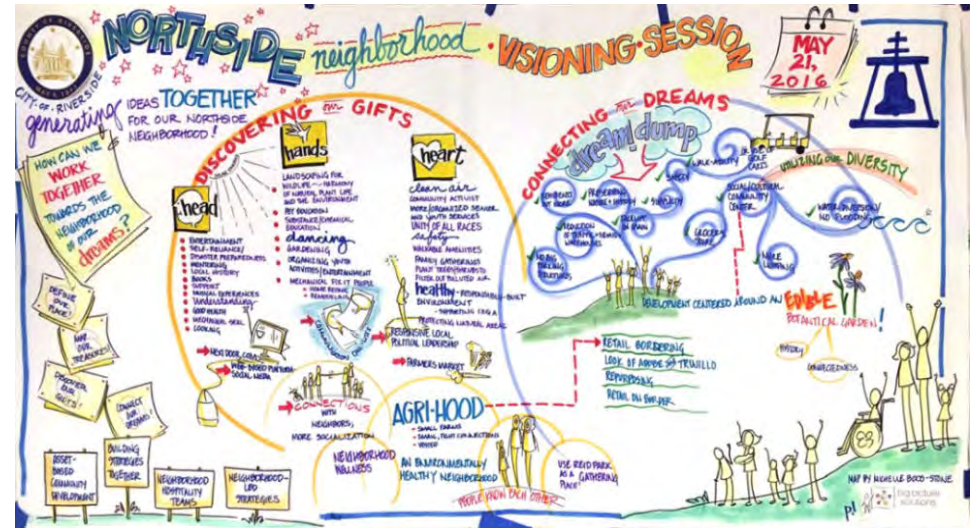 CITY OF RIVERSIDE
NORTHSIDE neighborhood VISIONING SESSION
MAY
21,
2016
generating IDEAS TOGETHER
FOR OUR NORTHSIDE
NEIGHBORHOOD!
HOW CAN WE
WORK
TOGETHER
TOWARDS THE
NEIGHBORHOOD
OF OUR
dreams?
DEFINE
OUR
PLACE!
MAP
OUR
TREASURES!
DISCOVER
OUR
GIFTS!
CONNECT
OUR
DREAMS!
ASSET-
BASED
COMMUNITY
DEVELOPMENT
BUILDING
STRATEGIES
TOGETHER
NEIGHBORHOOD
HOSPITALITY
TEAMS
NEIGHBORHOOD-
LED
STRATEGIES
DISCOVERING our GIFTS
head
ENTERTAINMENT
SELF-RELIANCE/
DISASTER PREPAREDNESS
MENTORING
LOCAL HISTORY
BOOKS
SUPPORT
MANUAL EXPERIENCES
Understanding
GOOD HEALTH
COOKING
NEXT DOOR.COM
WEB-BASED PLATFORM
SOCIAL MEDIA
hands
LANDSCAPING FOR
WILDLIFE - HARMONY
OF NATURAL PLANT LIFE
AND THE ENVIRONMENT
PET EDUCATION
SUBSTANCE/CHEMICAL
EDUCATION
dancing
GARDENING
ORGANIZING YOUTH
ACTIVITIES/ENTERTAINMENT
MECHANICAL FOX IT PEOPLE
HOME REPAIR
REMODELING
heart
clean air
COMMUNITY ACTIVIST
MORE/ORGANIZED SENIOR
AND YOUTH SERVICES
UNITY OF ALL RACES
Safety
WALKABLE AMENITIES
FAMILY GATHERINGS
PLANT TREES/SHRUBS TO
FILTER OUT POLLUTED AIR
healthy - RESPONSIBLE-BUILT
ENVIRONMENT
PROTECTING NATURAL AREAS
RESPONSIVE LOCAL
POLITICAL LEADERSHIP
FARMERS MARKET
CONNECTIONS
WITH
NEIGHBORS;
MORE SOCIALIZATION
NEIGHBORHOOD
WELLNESS
AGRI-HOOD
SMALL FARMS
AN ENVIRONMENTALLY
HEALTHY NEIGHBORHOOD
PEOPLE KNOW EACH OTHER
USE REID PARK
AS A GATHERING
PLACE!
CONNECTING our DREAMS
dream! dump
WALK-ABILITY
OR USE OF
GOLF
CARTS
SAFETY
PRESERVING
WATER + HISTORY
REDUCTION
NO BIG
BUILDING
GROCERY
STORE
SOCIAL/CULTURAL
COMMUNITY
CENTER
MORE
LIGHTING
UTILIZING OUR DIVERSITY
WATER DIVERSION/
NO FLOODING
DEVELOPMENT CENTERED AROUND AN EDIBLE
BOTANTICAL GARDEN!
HISTORY
CONNECTEDNESS
RETAIL BORDERING
LOOK OF ADOBE TRUJILLO
REPURPOSING
RETAIL ON BORDER
MAP BY MICHELLE BOOS-STONE
big picture
solutions